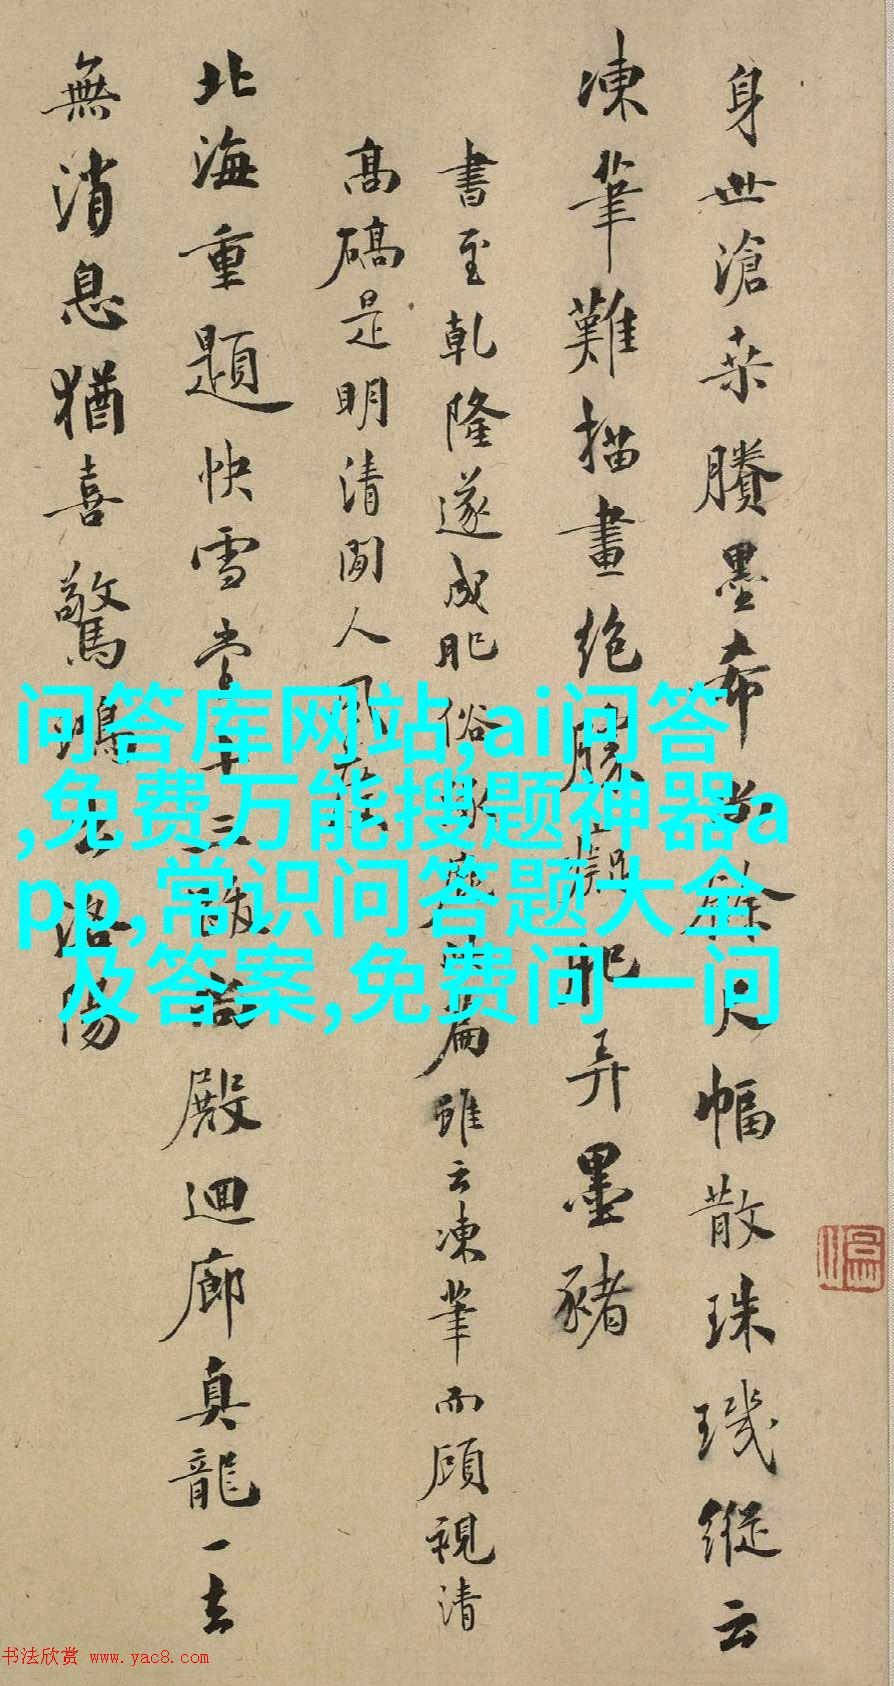 身世滄桑賸墨希尚餘尺幅散珠璣縱云
凍筆難描畫絶勝癡肥弄墨豬
書至乾隆遂成肥俗
篇雖云凍筆而顧視清
高磆是明清間人風
北海重題快雪堂
殿迴廊真龍一去
無消息猶喜驚鴻
洛陽
问答库网站,ai问答
,免费万能搜题神器a
pp,常识问答题大全
及答案,免费问一问
书法欣赏 www.yac8.com